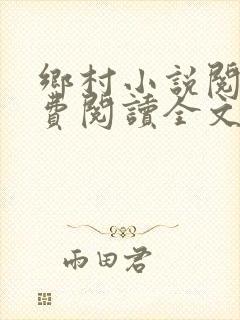 鄉村小說閱
費閱讀全文
雨田君